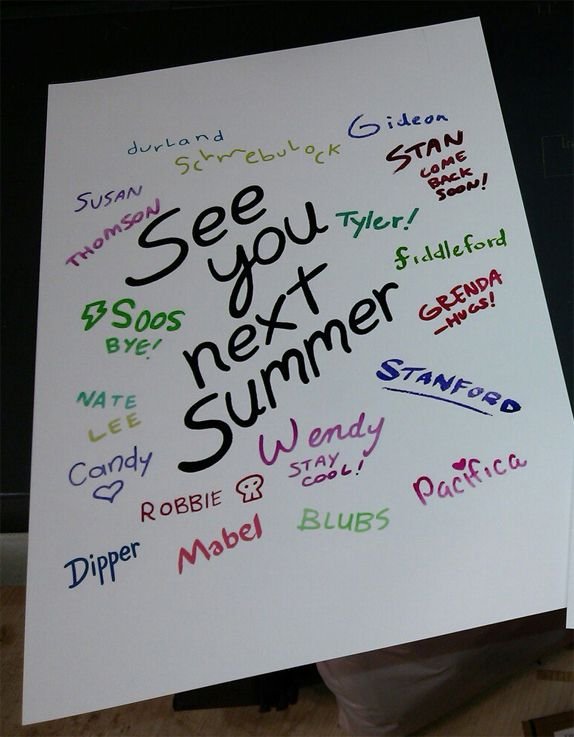 durland
Schmebulock
Gideon
STAN
COME
BACK
SOON!
SUSAN
THOMSON
See
you
next
Summer
Tyler!
fiddleford
GRENDA
-HUGS!
SOOS
BYE!
STANFORD
NATE
LEE
Wendy
STAY
COOL!
Candy
Pacifica
ROBBIE
BLUBS
Mabel
Dipper